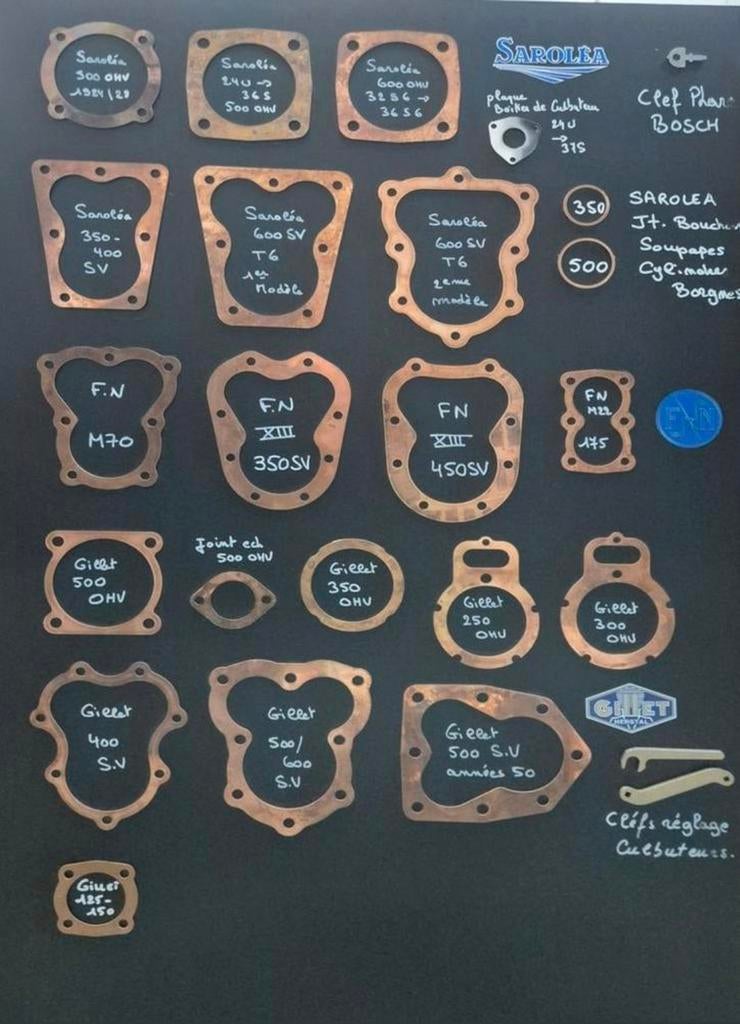 Saroléa
300 OHV
1924/28
Saroléa
24U →
36S
500 OHV
Saroléa
600 OHV
32S6 →
36S6
SAROLÉA
plaque
Boitier de Culbuteur
24U
→
37S
Clef Phare
BOSCH
Saroléa
350-
400
SV
Saroléa
600 SV
T6
1er
Modèle
Saroléa
600 SV
T6
2ème
modèle
350
500
SAROLEA
Jt. Bouchon
Soupapes
Cyl. moteur
Borgnes
F.N
M70
F.N
XIII
350SV
FN
XIII
450SV
FN
M22
175
FN
Gillet
500
OHV
Joint ech
500 OHV
Gillet
350
OHV
Gillet
250
OHV
Gillet
300
OHV
Gillet
400
S.V
Gillet
500/
600
S.V
Gillet
500 S.V
années 50
GILLET
HERSTAL
Cléfs réglage
Culbuteurs.
Gillet
125-
150